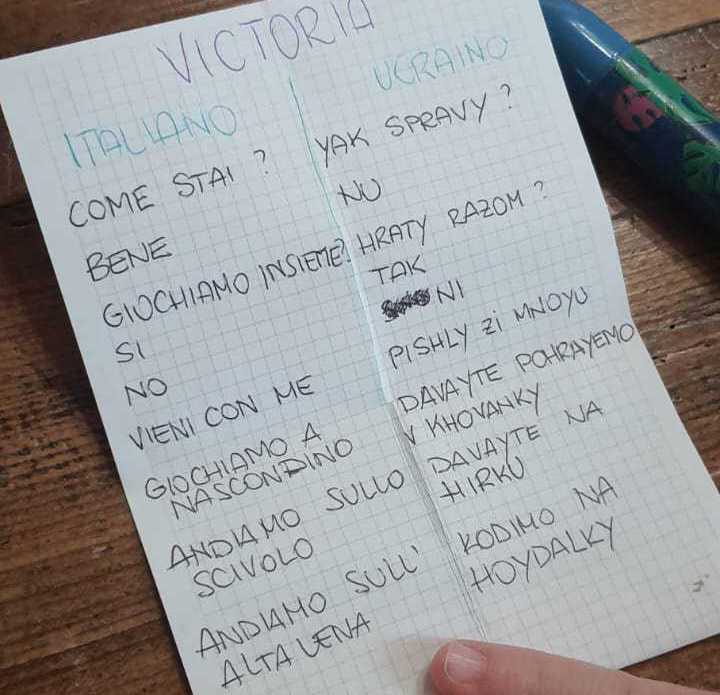 VICTORIA
ITALIANO
UCRAINO
COME STAI ?
YAK SPRAVY ?
BENE
NU
GIOCHIAMO INSIEME?
HRATY RAZOM ?
SI
TAK
NO
NI
VIENI CON ME
PISHLY ZI MNOYU
GIOCHIAMO A
NASCONDINO
DAVAYTE POHRAYEMO
V KHOVANKY
ANDIAMO SULLO
SCIVOLO
DAVAYTE NA
HIRKU
ANDIAMO SULL'
ALTALENA
KODIMO NA
HOYDALKY